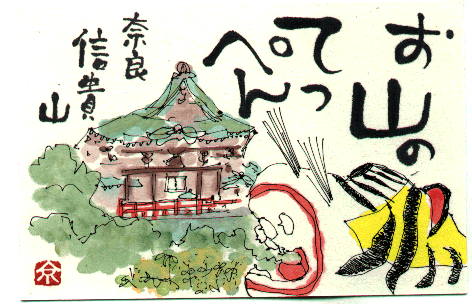 お山の
てっ
ぺん
奈良
信貴
山